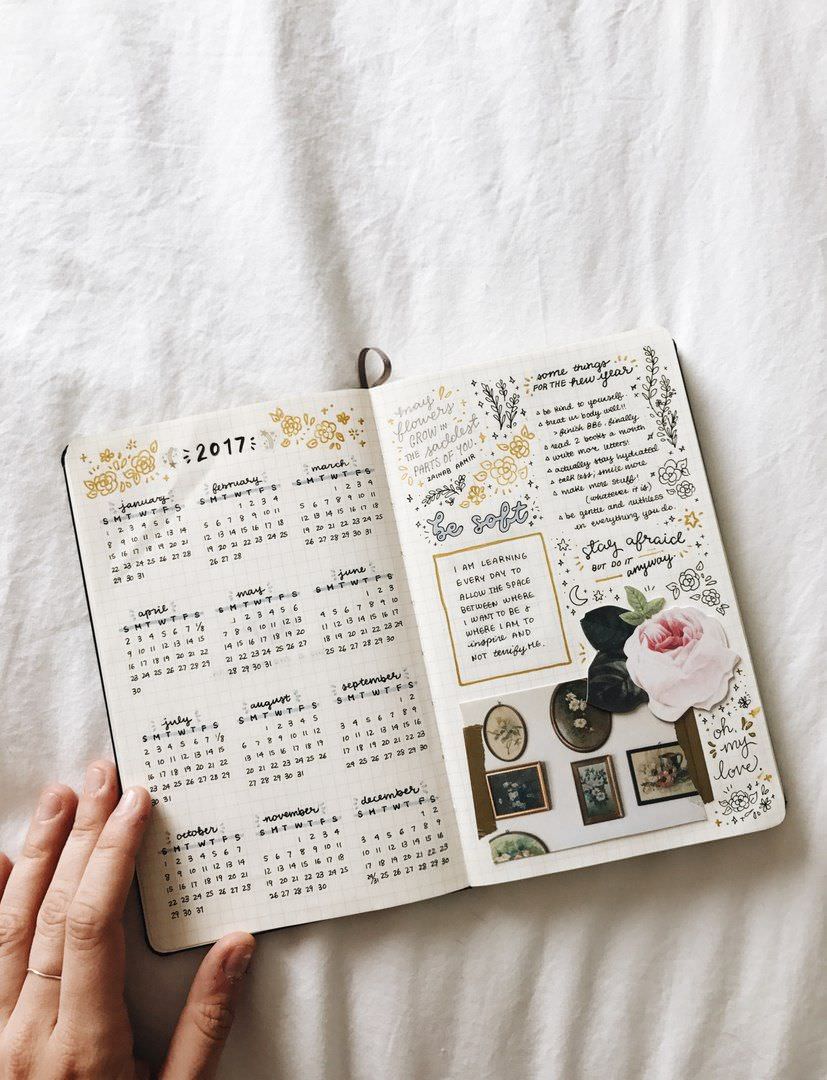 2017
january
S M T W T F S
1 2 3 4 5 6 7
8 9 10 11 12 13 14
15 16 17 18 19 20 21
22 23 24 25 26 27 28
29 30 31
february
S M T W T F S
1 2 3 4
5 6 7 8 9 10 11
12 13 14 15 16 17 18
19 20 21 22 23 24 25
26 27 28
march
S M T W T F S
1 2 3 4
5 6 7 8 9 10 11
12 13 14 15 16 17 18
19 20 21 22 23 24 25
26 27 28 29 30 31
april
S M T W T F S
2 3 4 5 6 7 1/8
9 10 11 12 13 14 15
16 17 18 19 20 21 22
23 24 25 26 27 28 29
30
may
S M T W T F S
1 2 3 4 5 6
7 8 9 10 11 12 13
14 15 16 17 18 19 20
21 22 23 24 25 26 27
28 29 30 31
june
S M T W T F S
1 2 3
4 5 6 7 8 9 10
11 12 13 14 15 16 17
18 19 20 21 22 23 24
25 26 27 28 29 30
july
S M T W T F S
2 3 4 5 6 7 1/8
9 10 11 12 13 14 15
16 17 18 19 20 21 22
23 24 25 26 27 28 29
30 31
august
S M T W T F S
1 2 3 4 5
6 7 8 9 10 11 12
13 14 15 16 17 18 19
20 21 22 23 24 25 26
27 28 29 30 31
september
S M T W T F S
1 2
3 4 5 6 7 8 9
10 11 12 13 14 15 16
17 18 19 20 21 22 23
24 25 26 27 28 29 30
october
S M T W T F S
1 2 3 4 5 6 7
8 9 10 11 12 13 14
15 16 17 18 19 20 21
22 23 24 25 26 27 28
29 30 31
november
S M T W T F S
1 2 3 4
5 6 7 8 9 10 11
12 13 14 15 16 17 18
19 20 21 22 23 24 25
26 27 28 29 30
december
S M T W T F S
1 2
3 4 5 6 7 8 9
10 11 12 13 14 15 16
17 18 19 20 21 22 23
24/31 25 26 27 28 29 30
may
flowers
GROW IN
THE saddest
PARTS OF YOU.
- ZAINAB AAMIR
be soft
I AM LEARNING
EVERY DAY TO
ALLOW THE SPACE
BETWEEN WHERE
I WANT TO BE &
WHERE I AM TO
inspire AND
NOT terrify ME.
some things
FOR THE new year
be kind to yourself.
treat ur body well!!
finish BBG. finally
read 2 books a month
write more letters!
actually stay hydrated
talk less; smile more
make more stuff!
(whatever it is)
be gentle and ruthless
in everything you do.
stay afraid
BUT DO IT
anyway
oh,
my
love.